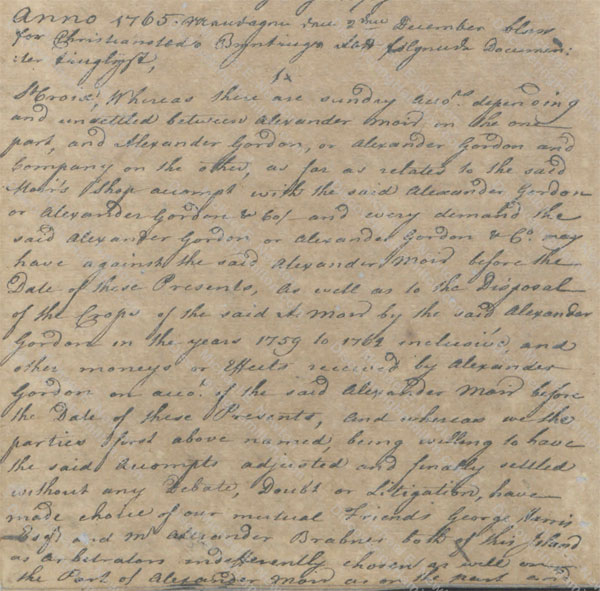 Anno 1765. Mandagen den 2den December blev
for Christiansteds Byetings Rett følgende Documen:
ter tinglyst,
St Croix, Whereas there are sundry accots depending
and unsettled between Alexander Moir on the one
part, and Alexander Gordon, or Alexander Gordon and
Company on the other, as far as relates to the said
Moir's shop accompt with the said Alexander Gordon
or Alexander Gordon & Co/ and every demand the
said Alexander Gordon or Alexander Gordon & Co. may
have against the said Alexander Moir before the
Date of these Presents, As well as to the Disposal
of the Crops of the said A: Moir by the said Alexander
Gordon in the years 1759 to 1762 inclusive, and
other moneys or Effects received by Alexander
Gordon on accot. of the said Alexander Moir before
the Date of these Presents, And whereas we the
parties first above named, being willing to have
the said Accompts adjusted and finally settled
without any Debate, Doubt or Litigation, have
made choice of our mutual Friends George
Esqr and Mr Alexander Brabner both of this Island
as Arbitrators indifferently chosen as well on
the Part of Alexander Moir as on the part and